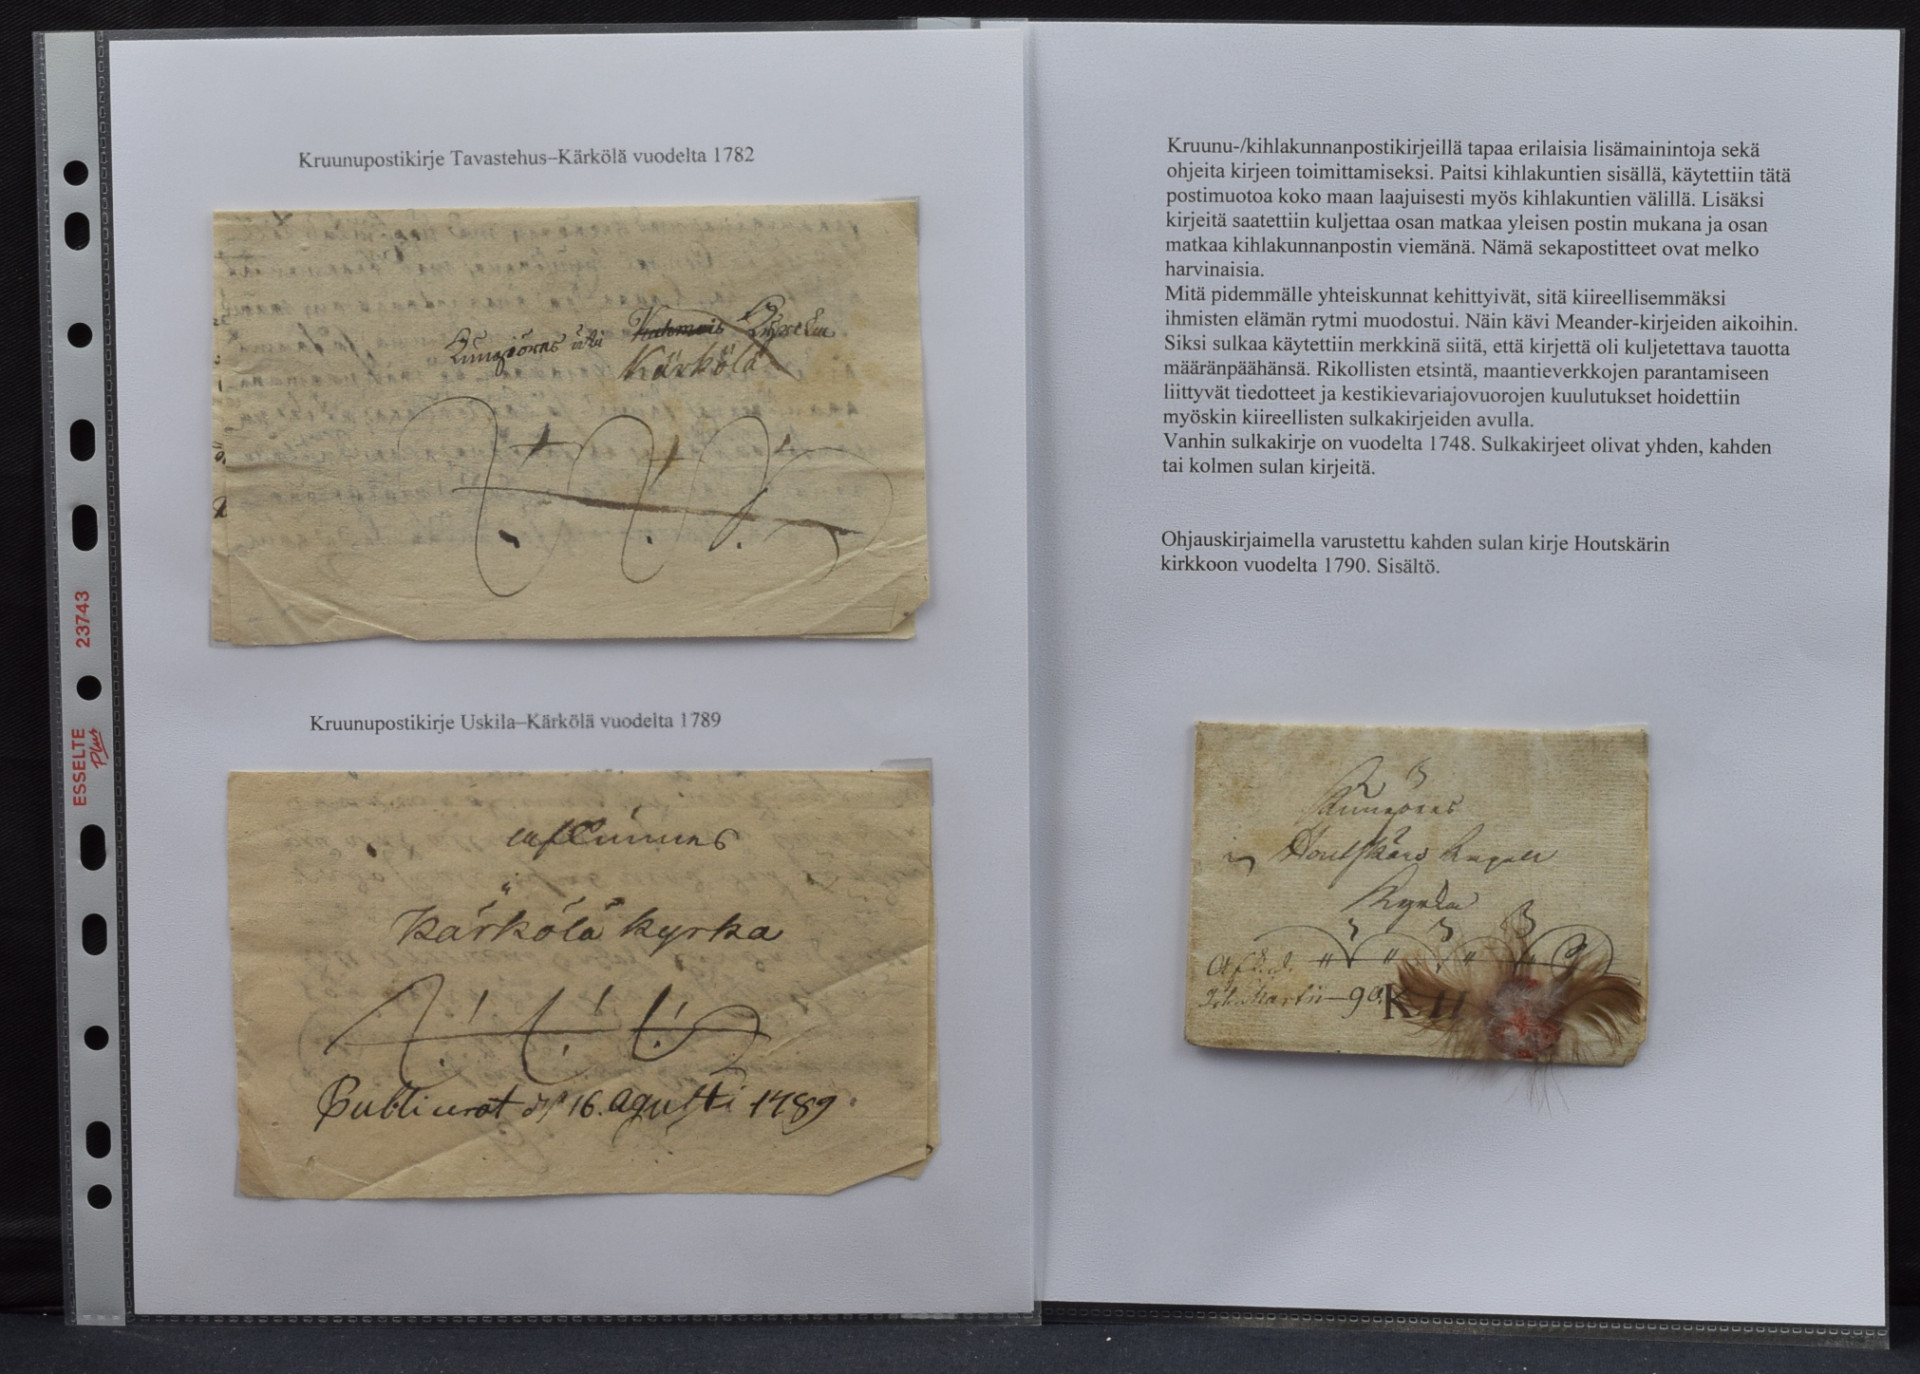 Kruunupostikirje Tavastehus–Kärkölä vuodelta 1782
Kärkölä
Kruunupostikirje Uskila–Kärkölä vuodelta 1789
Kärkölä kyrka
Publicerat d. 16. Agusti 1789.
23743
ESSELTE
Plus
Kruunu-/kihlakunnanpostikirjeillä tapaa erilaisia lisämainintoja sekä
ohjeita kirjeen toimittamiseksi. Paitsi kihlakuntien sisällä, käytettiin tätä
postimuotoa koko maan laajuisesti myös kihlakuntien välillä. Lisäksi
kirjeitä saatettiin kuljettaa osan matkaa yleisen postin mukana ja osan
matkaa kihlakunnanpostin viemänä. Nämä sekapostitteet ovat melko
harvinaisia.
Mitä pidemmälle yhteiskunnat kehittyivät, sitä kiireellisemmäksi
ihmisten elämän rytmi muodostui. Näin kävi Meander-kirjeiden aikoihin.
Siksi sulkaa käytettiin merkkinä siitä, että kirjettä oli kuljetettava tauotta
määränpäähänsä. Rikollisten etsintä, maantieverkkojen parantamiseen
liittyvät tiedotteet ja kestikievariajovuorojen kuulutukset hoidettiin
myöskin kiireellisten sulkakirjeiden avulla.
Vanhin sulkakirje on vuodelta 1748. Sulkakirjeet olivat yhden, kahden
tai kolmen sulan kirjeitä.
Ohjauskirjaimella varustettu kahden sulan kirje Houtskärin
kirkkoon vuodelta 1790. Sisältö.
Houtskärs
Kyrka
Martii – 90.
K